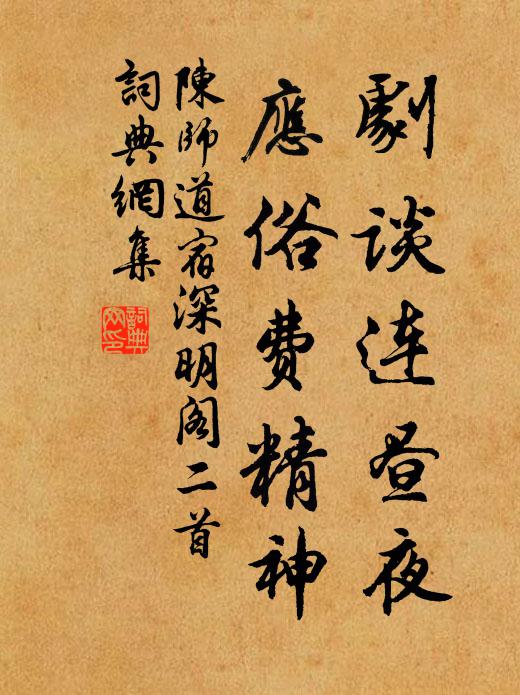 劇談连昼夜
應俗費精神
陳師道宿深明阁二首
詞典網集
詞典网印